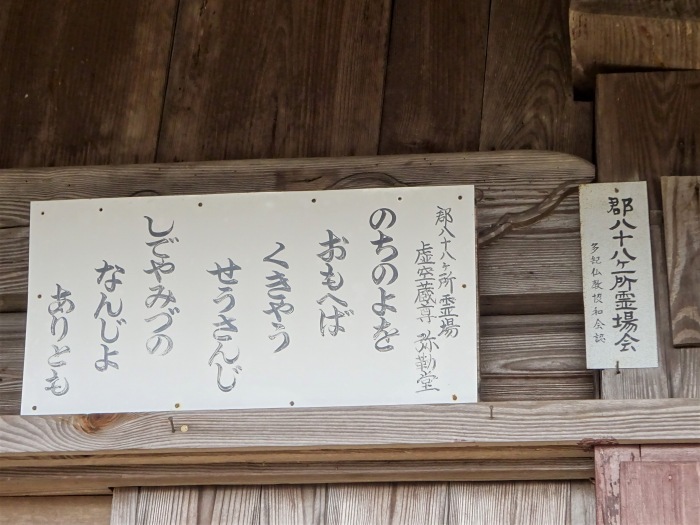 郡八十八ヶ所霊場
虚空蔵尊 弥勒堂
のちのよを
おもへば
くきやう
せうさんじ
しでやみづの
なんじよ
ありとも
郡八十八ヶ所霊場会
多紀仏教協和会認